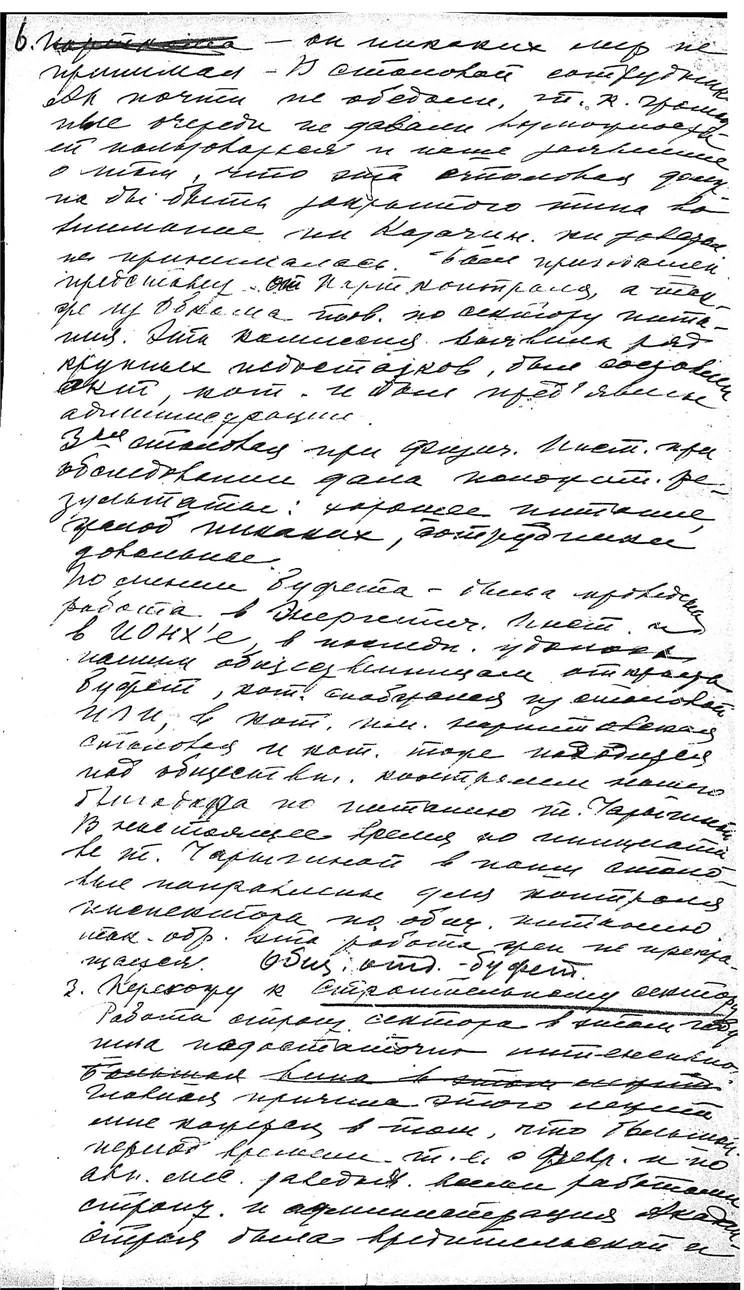 6. парткома — он никаких мер не
принимал — В столовой сотрудник
АН почти не обедали, т. к. громад
ные очереди не давали возможности
ей пользоваться и наше заявление
о том, что эта столовая долж
на бы быть закрытого типа во
внимание ни Карачин. ни заведен
не принималось. Был приглашен
представ. от Парт контроля, а так
же из Обкома тов. по сектору пита-
ния. Эта комиссия выявила ряд
крупных недостатков, был составлен
акт, кот. и был пред'явлен
администрации.
3-ья столовая при Физич. Инст. при
обследовании дала полож. ре-
зультаты: хорошее питание,
жалоб никаких, сотрудники
довольные.
По линии буфета — была проведена
работа в Энергетич. Инст. и
в ИОНХ'е, в последн. удалось
нашим общественницам открыть
буфет, кот. снабжался из столовой
ИГИ, в кот. им.
столовая и кот. тоже находится
под обществен. контролем нашего
бригадира по питанию т. Чарыгиной
В настоящее время по инициати
ве т. Чарыгиной в наши столо-
вые направлены для контроля
инспектора по общ. питанию
так. обр. эта работа у нас не прекра-
щается. Общ. отд. - буфет.
3. Перехожу к Строительному сектору
Работа строит. сектора в этом году
шла недостаточно интенсивно.
Большая вина в этом
Главная причина этого лежит
мне кажется в том, что большой
период времени т. е. с февр. и по
авг. мес. заведыв. всеми работами
строит. и администрация Академ-
строя была вредительской и